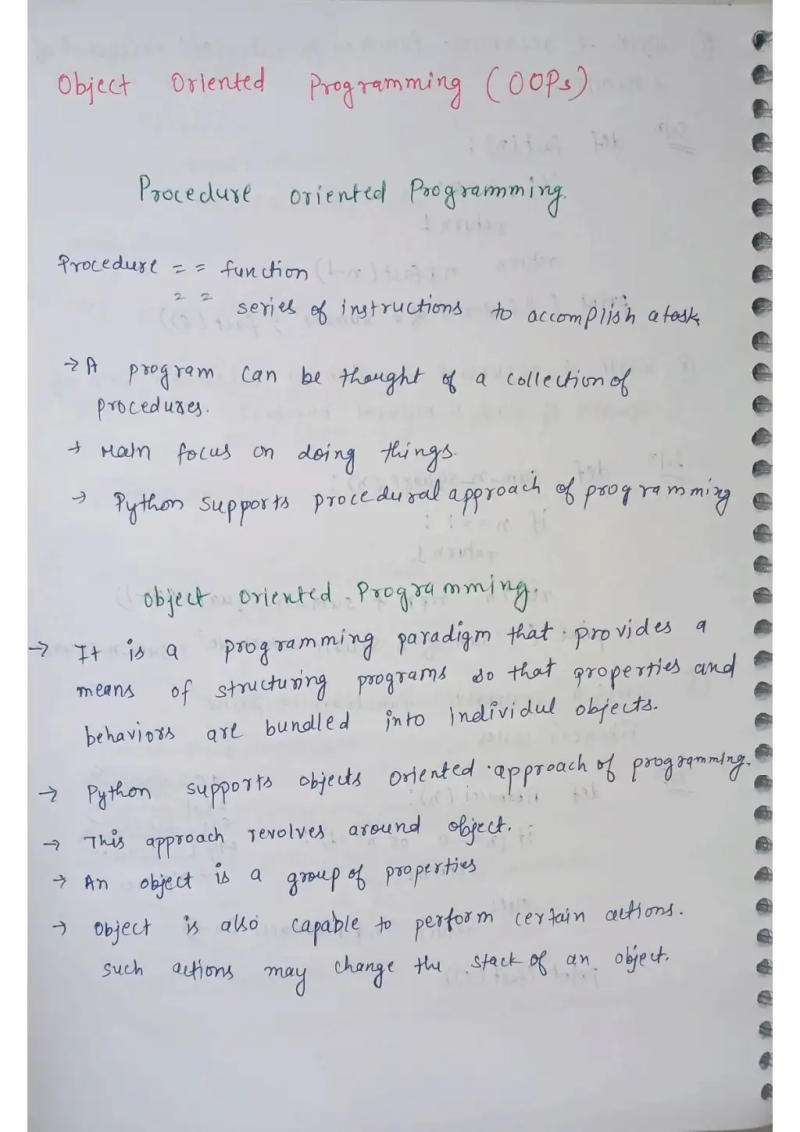 Object Oriented Programming (OOPs)
Procedure oriented Programmming.
Procedure = = function
= = series of instructions to accomplish a task
→ A program can be thought of a collection of
procedures.
→ Main focus on doing things.
→ Python supports procedural approach of programming
Object Oriented Programming.
→ It is a programming paradigm that provides a
means of structuring programs so that properties and
behaviors are bundled into individul objects.
→ Python supports objects oriented approach of programming.
→ This approach revolves around object.
→ An object is a group of properties
→ Object is also capable to perform certain actions.
such actions may change the stack of an object.